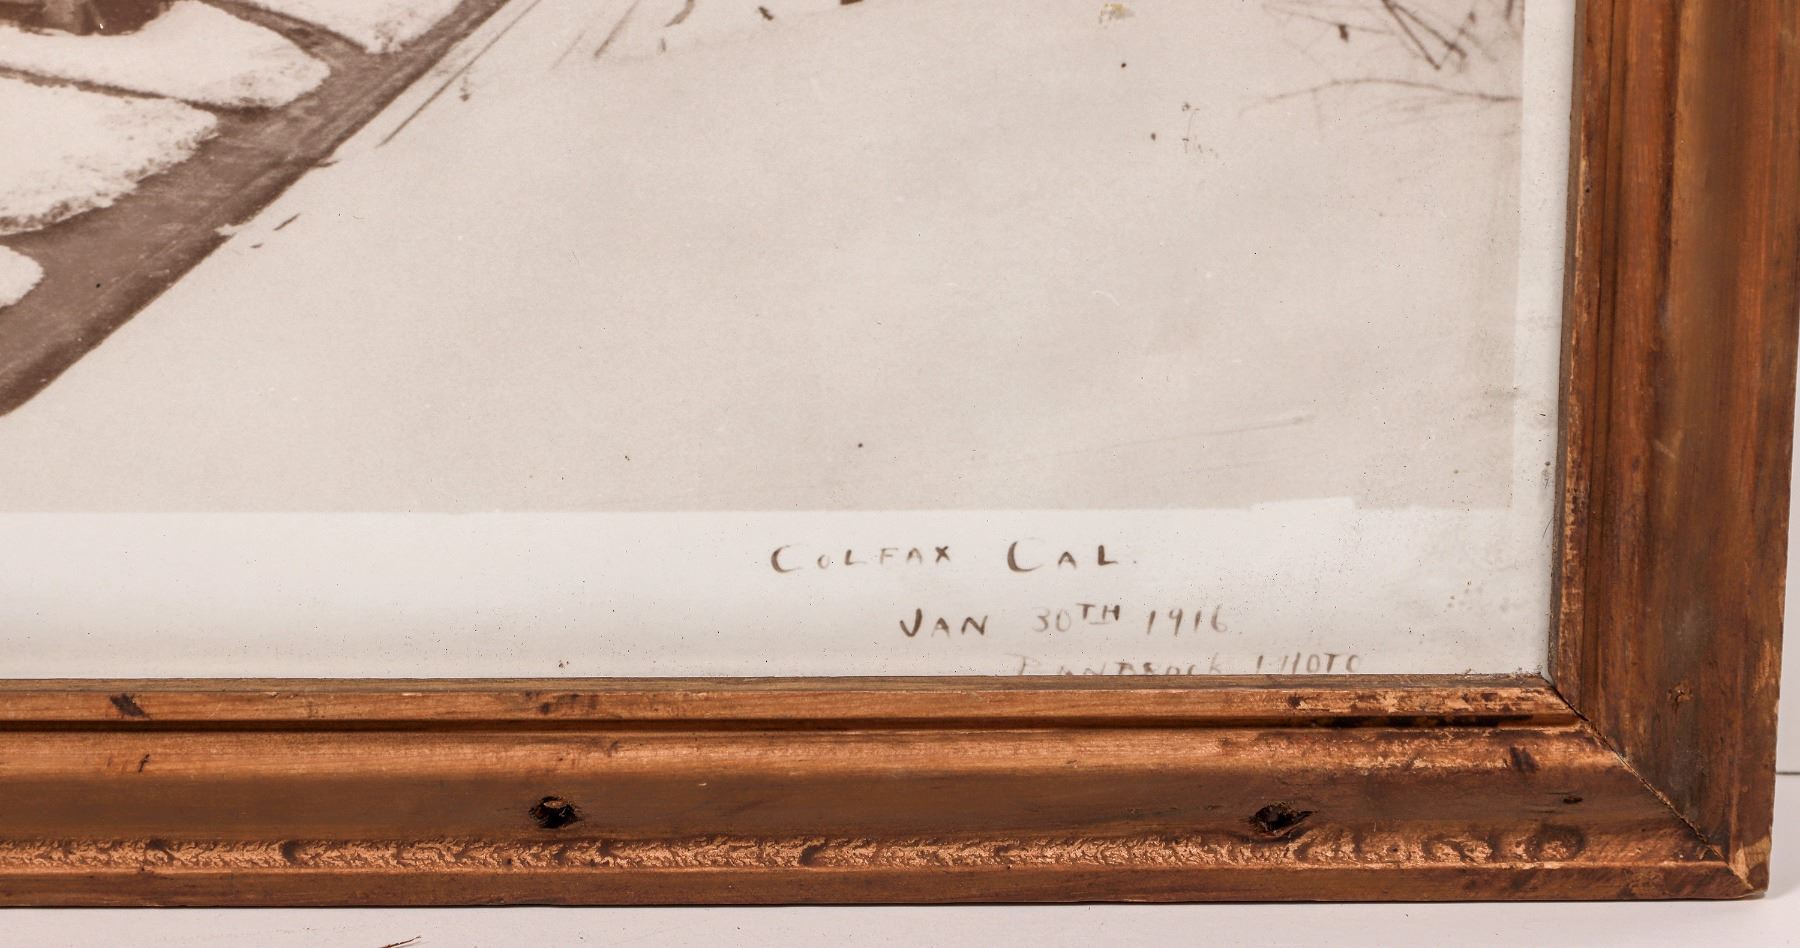 COLFAX CAL.
JAN 30TH 1916
PHOTO